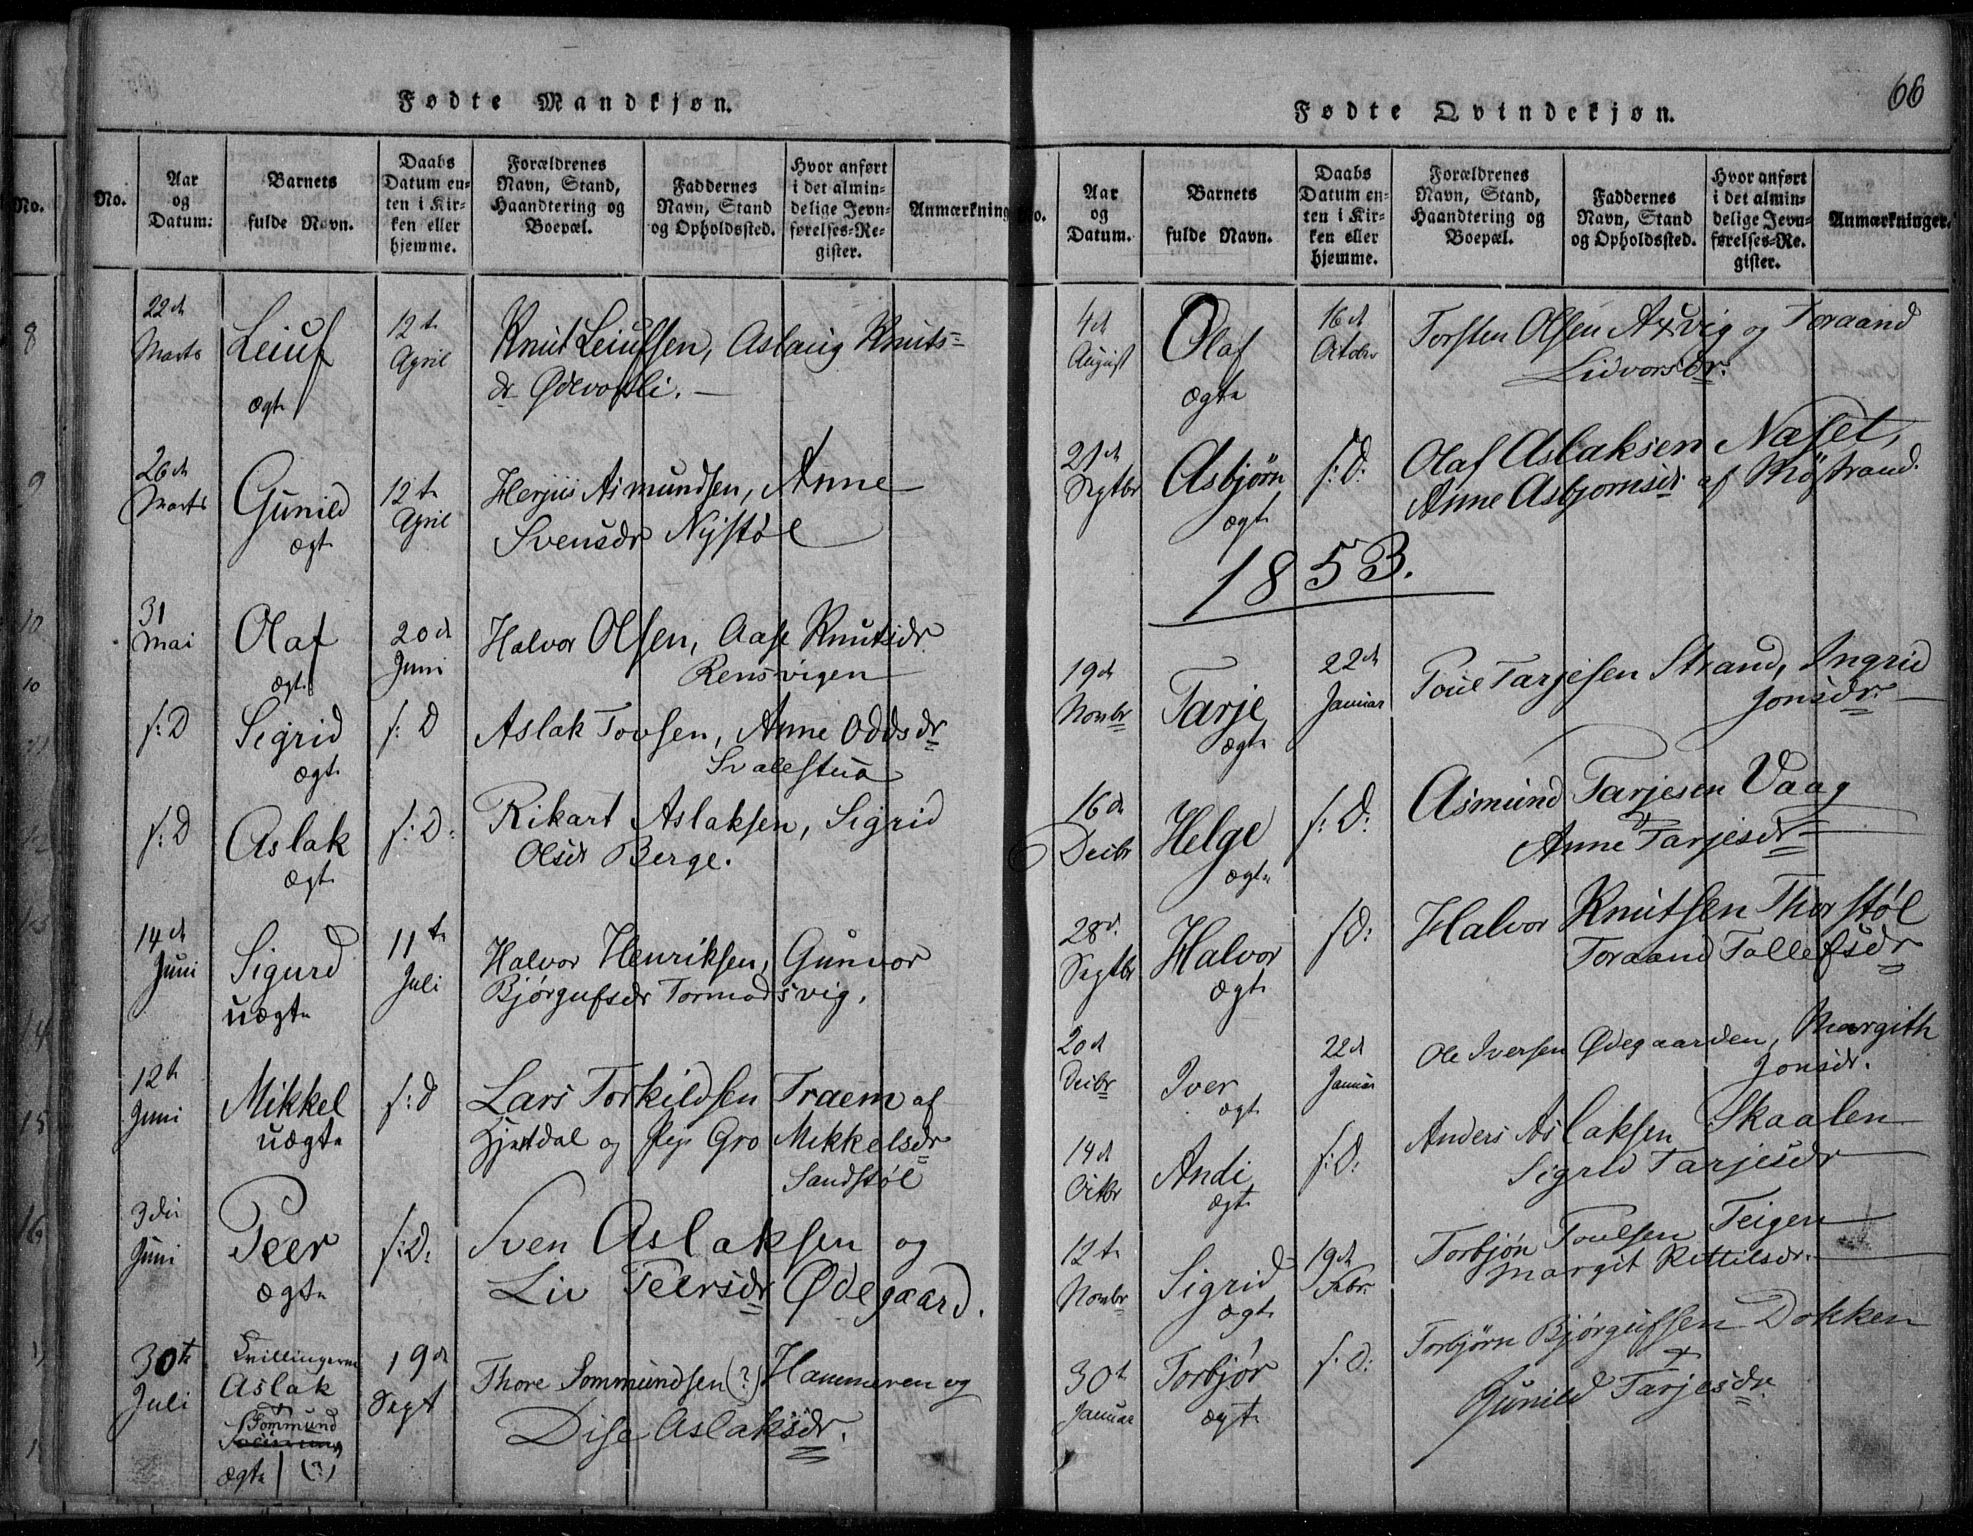 Fødte Mandkjøn.
No.
No.
Aar
og
Datum:
Barnets
fulde Navn.
Daabs
Datum en-
ten i Kir-
ken eller
hjemme.
Forældrenes
Navn, Stand,
Haandtering og
Boepæl.
Faddernes
Navn, Stand
og Opholdssted.
Hvor anført
i det almin-
delige Jevn-
førelses-Re-
gister.
Anmærkning
8
22de
Marts
Leiuf
ægte
12te
April
Knut Leiufsen, Aslaug Knuts=
dr
26de
Marts
Gunild
ægt
12te
April
Herjus Asmundsen, Anne
Svensdr Nystøl
31
Mai
Olaf
ægte
20de
Juni
Halvor Olsen, Aase Knutsdr
Rensvigen
s: D
Sigrid
ægte
s: D
Aslak Tovsen, Anne Oddsdr
Svalestua
s: D
Aslak
ægte
s: D:
Rikart Aslaksen, Sigrid
Olsdr Berge.
14de
Juni
Sigurd
uægte
11te
Juli
Halvor Henriksen, Gunvor
Bjørgufsdr Tormodsvig.
12te
Juni
Mikkel
uægte
s: d
Lars Torkildsen Traem af
Hjertdal og Pige Gro Mikkelsdr
Sandstøl
3die
Juni
Peer
ægte
s: D:
Sven Aslaksen og
Liv Peersdr Ødegaard.
30te
Juli
Tvillingerne
Aslak
Sommund
ægte (?)
19de
Sept
Thore Sommundsen (?) Hammeren og
Dise Aslaksdr.
66
Fødte Qvindekjøn.
No.
Aar
og
Datum.
Barnets
fulde Navn.
Daabs
Datum en-
ten i Kir-
ken eller
hjemme.
Forældrenes
Navn, Stand,
Haandtering og
Boepæl.
Faddernes
Navn, Stand
og Opholdssted.
Hvor anført
i det almin-
delige Jevn-
førelses-Re-
gister.
Anmærkninger.
4de
August
Olaf
ægte
16de
Octobr
Torsten Olsen Axvig og Toraand
Lidvorsdr.
21de
Septbr
Asbjørn
ægt
s: D:
Olaf Aslaksen Næset,
Anne Asbjørnsdr af Møstrand.
1853.
19de
Novbr
Tarje
ægte
22de
Januar
Poul Tarjesen Strand, Ingrid
Jonsdr
16de
Decbr
Helge
ægte
s: D:
Asmund Tarjesen Vaag
Anne Tarjesdr
28d.
Septbr
Halvor
ægte
s D:
Halvor Knutsen Thorstøl
Toraand Tollefsdr
20de
Decbr
Iver
ægt
22de
Januar
Ole Iversen Ødegaarden, Margith
Jonsdr.
14de
Octbr
Andi
ægte
s: D:
Anders Aslaksen Skaalen
Sigrid Tarjesdr
12te
Novbr
Sigrid
ægte
19de
Febr.
Torbjøn Poulsen Teigen
Margit Kittilsdr.
30te
Januar
Torbjør
ægte
s: D:
Torbjørn Bjørgufsen Dokken
Gunild Tarjesdr